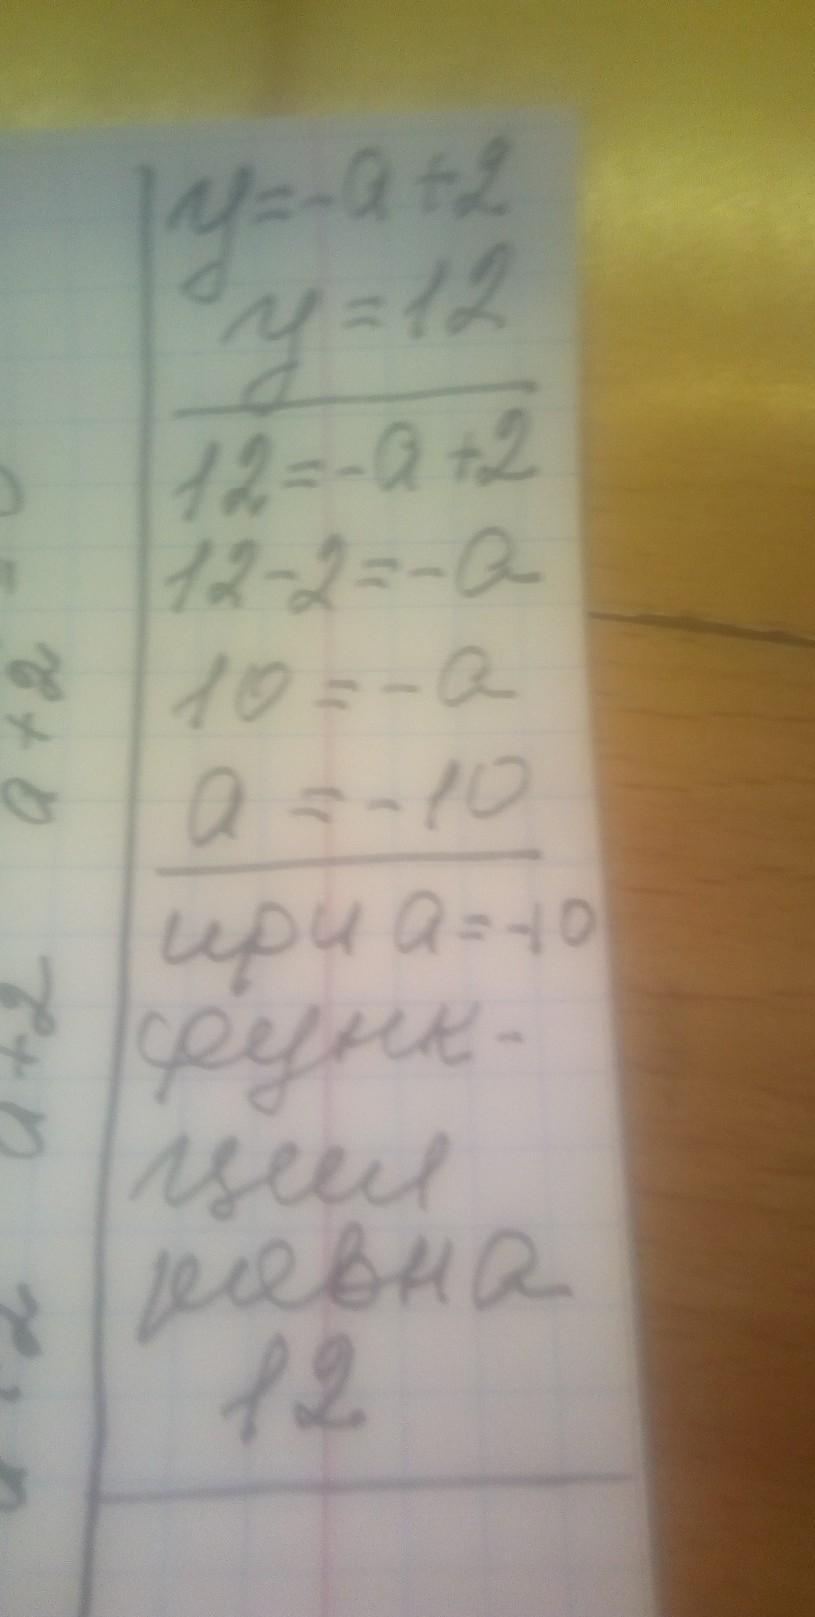 y=-a+2
y=12
12=-a+2
12-2=-a
10=-a
a=-10
при a=-10
функ-
ция
равна
12
a+2
a+2